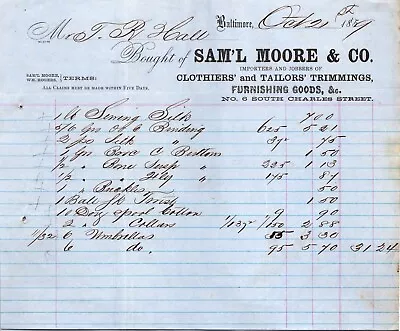 Mr T. R. Hall Baltimore, Oct 21st 1879
Bought of SAM'L MOORE & CO.
SAM'L MOORE,
WM. ROGERS,
TERMS:
IMPORTERS AND JOBBERS OF
CLOTHIERS' and TAILORS' TRIMMINGS,
FURNISHING GOODS, &c.
NO. 6 SOUTH CHARLES STREET.
ALL CLAIMS MUST BE MADE WITHIN FIVE DAYS.
1 lb Sewing Silk 7 00
5/6 Grs Binding 625 5 21
2 Silk " 37½ 75
Button 1 50
½ " Susp " 225 1 13
½ " " 175 87
1 " Buckles " 50
1 Bale Jk Twist 1 50
10 Doz Spool Cotton 9 90
2 " Collars 1/137½ 1/150 2 88
11/32 6 Umbrellas 55 3 30
6 do. 95 5 70 31 24